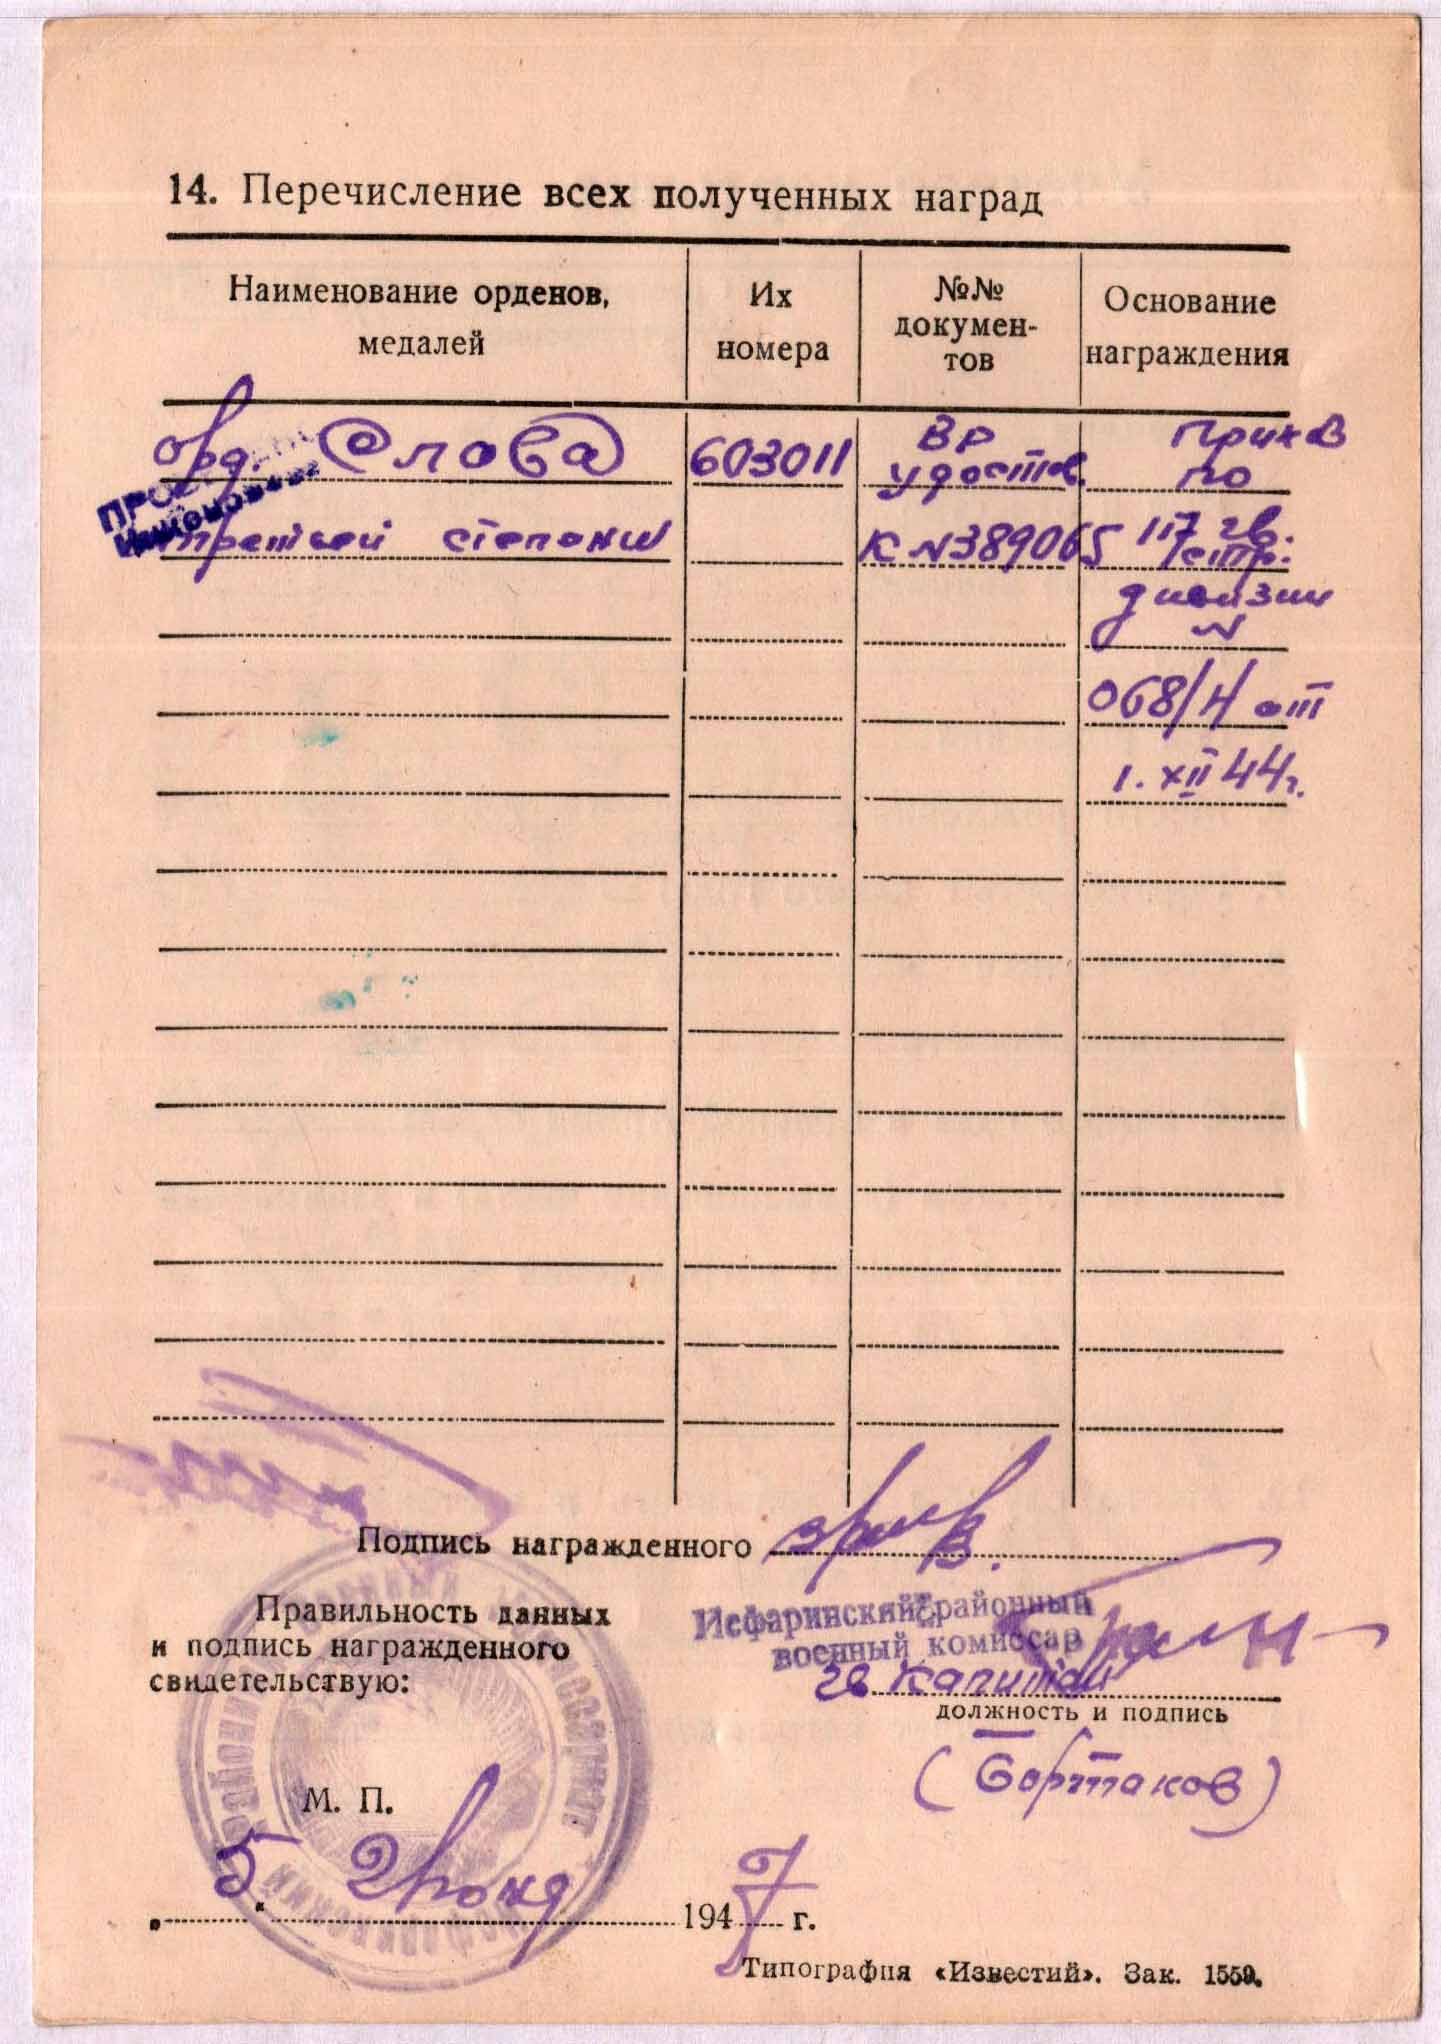 14. Перечисление всех полученных наград
Наименование орденов,
медалей
Их
номера
№№
докумен-
тов
Основание
награждения
орд. Слова
третьей степени
603011
Вр
удостов.
К №389065
Приказ
по
117 гв.
стр.
дивизии
№
068/Н от
1. XII 44г.
Подпись награжденного
Правильность данных
и подпись награжденного
свидетельствую:
Исфаринский районный
военный комиссар
гв Капитан
должность и подпись
(Бортаков)
М. П.
„ 5 “ 1947 г.
Типография «Известий». Зак. 1559.